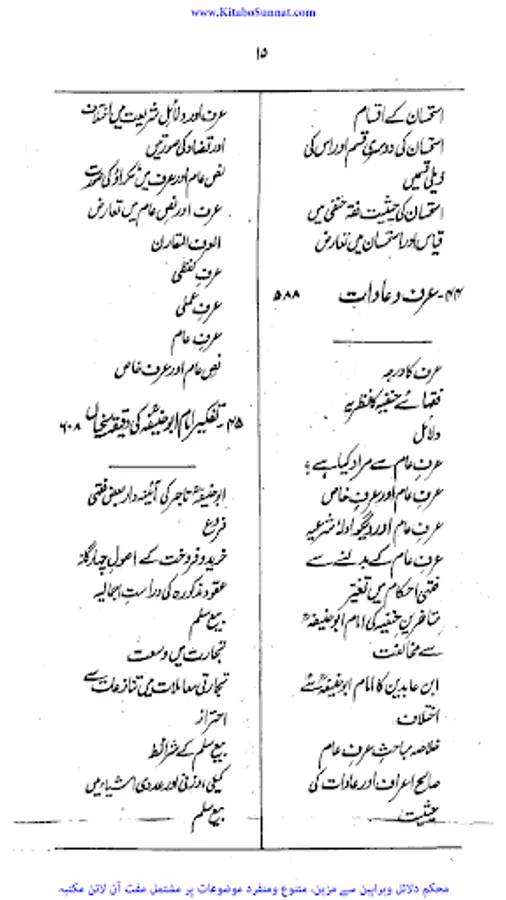 www.KitaboSunnat.com
۱۵
استحسان کے اقسام
استحسان کی دوسری قسم اور اس کی
ذیلی قسمیں
استحسان کی حیثیت فقہ حنفی میں
قیاس اور استحسان میں تعارض
۴۴- عرف و عادات ۵۸۸
عرف کا درجہ
فقہائے حنفیہ کا نظریہ
دلائل
عرفِ عام سے مراد کیا ہے؟
عرفِ عام اور عرفِ خاص
عرفِ عام اور دیگر ادلۂ شرعیہ
عرفِ عام کے بدلنے سے
فقہی احکام میں تغیّر
متاخرین حنفیہ کی امام ابوحنیفہؒ
سے مخالفت
ابن عابدین کا امام ابوحنیفہؒ سے
اختلاف
خلاصہ مباحثِ عرفِ عام
صالح اعراف اور عادات کی
حیثیت
عرف اور دلائل شریعت میں اختلاف
اور تضاد کی صورتیں
نص عام اور عرف میں ٹکراؤ کی صورت
عرف اور نصِ عام میں تعارض
العرف المقارن
عرفِ لفظی
عرفِ عملی
عرفِ عام
نصِ عام اور عرفِ خاص
۴۵- تفکیر امام ابوحنیفہؒ کی دقیقہ سنجیاں ۶۰۸
ابوحنیفہؒ تاجر کی آئینہ دار بعض فقہی
فروع
خرید و فروخت کے اصولِ چہارگانہ
عقود مذکورہ کی دراستِ اجمالیہ
بیع سلم
تجارت میں وسعت
تجارتی معاملات میں تنازعات سے
احتراز
بیع سلم کے شرائط
کیلی، وزنی اور عددی اشیاء میں
بیع سلم
محکم دلائل وبراہین سے مزین، متنوع ومنفرد موضوعات پر مشتمل مفت آن لائن مکتبہ